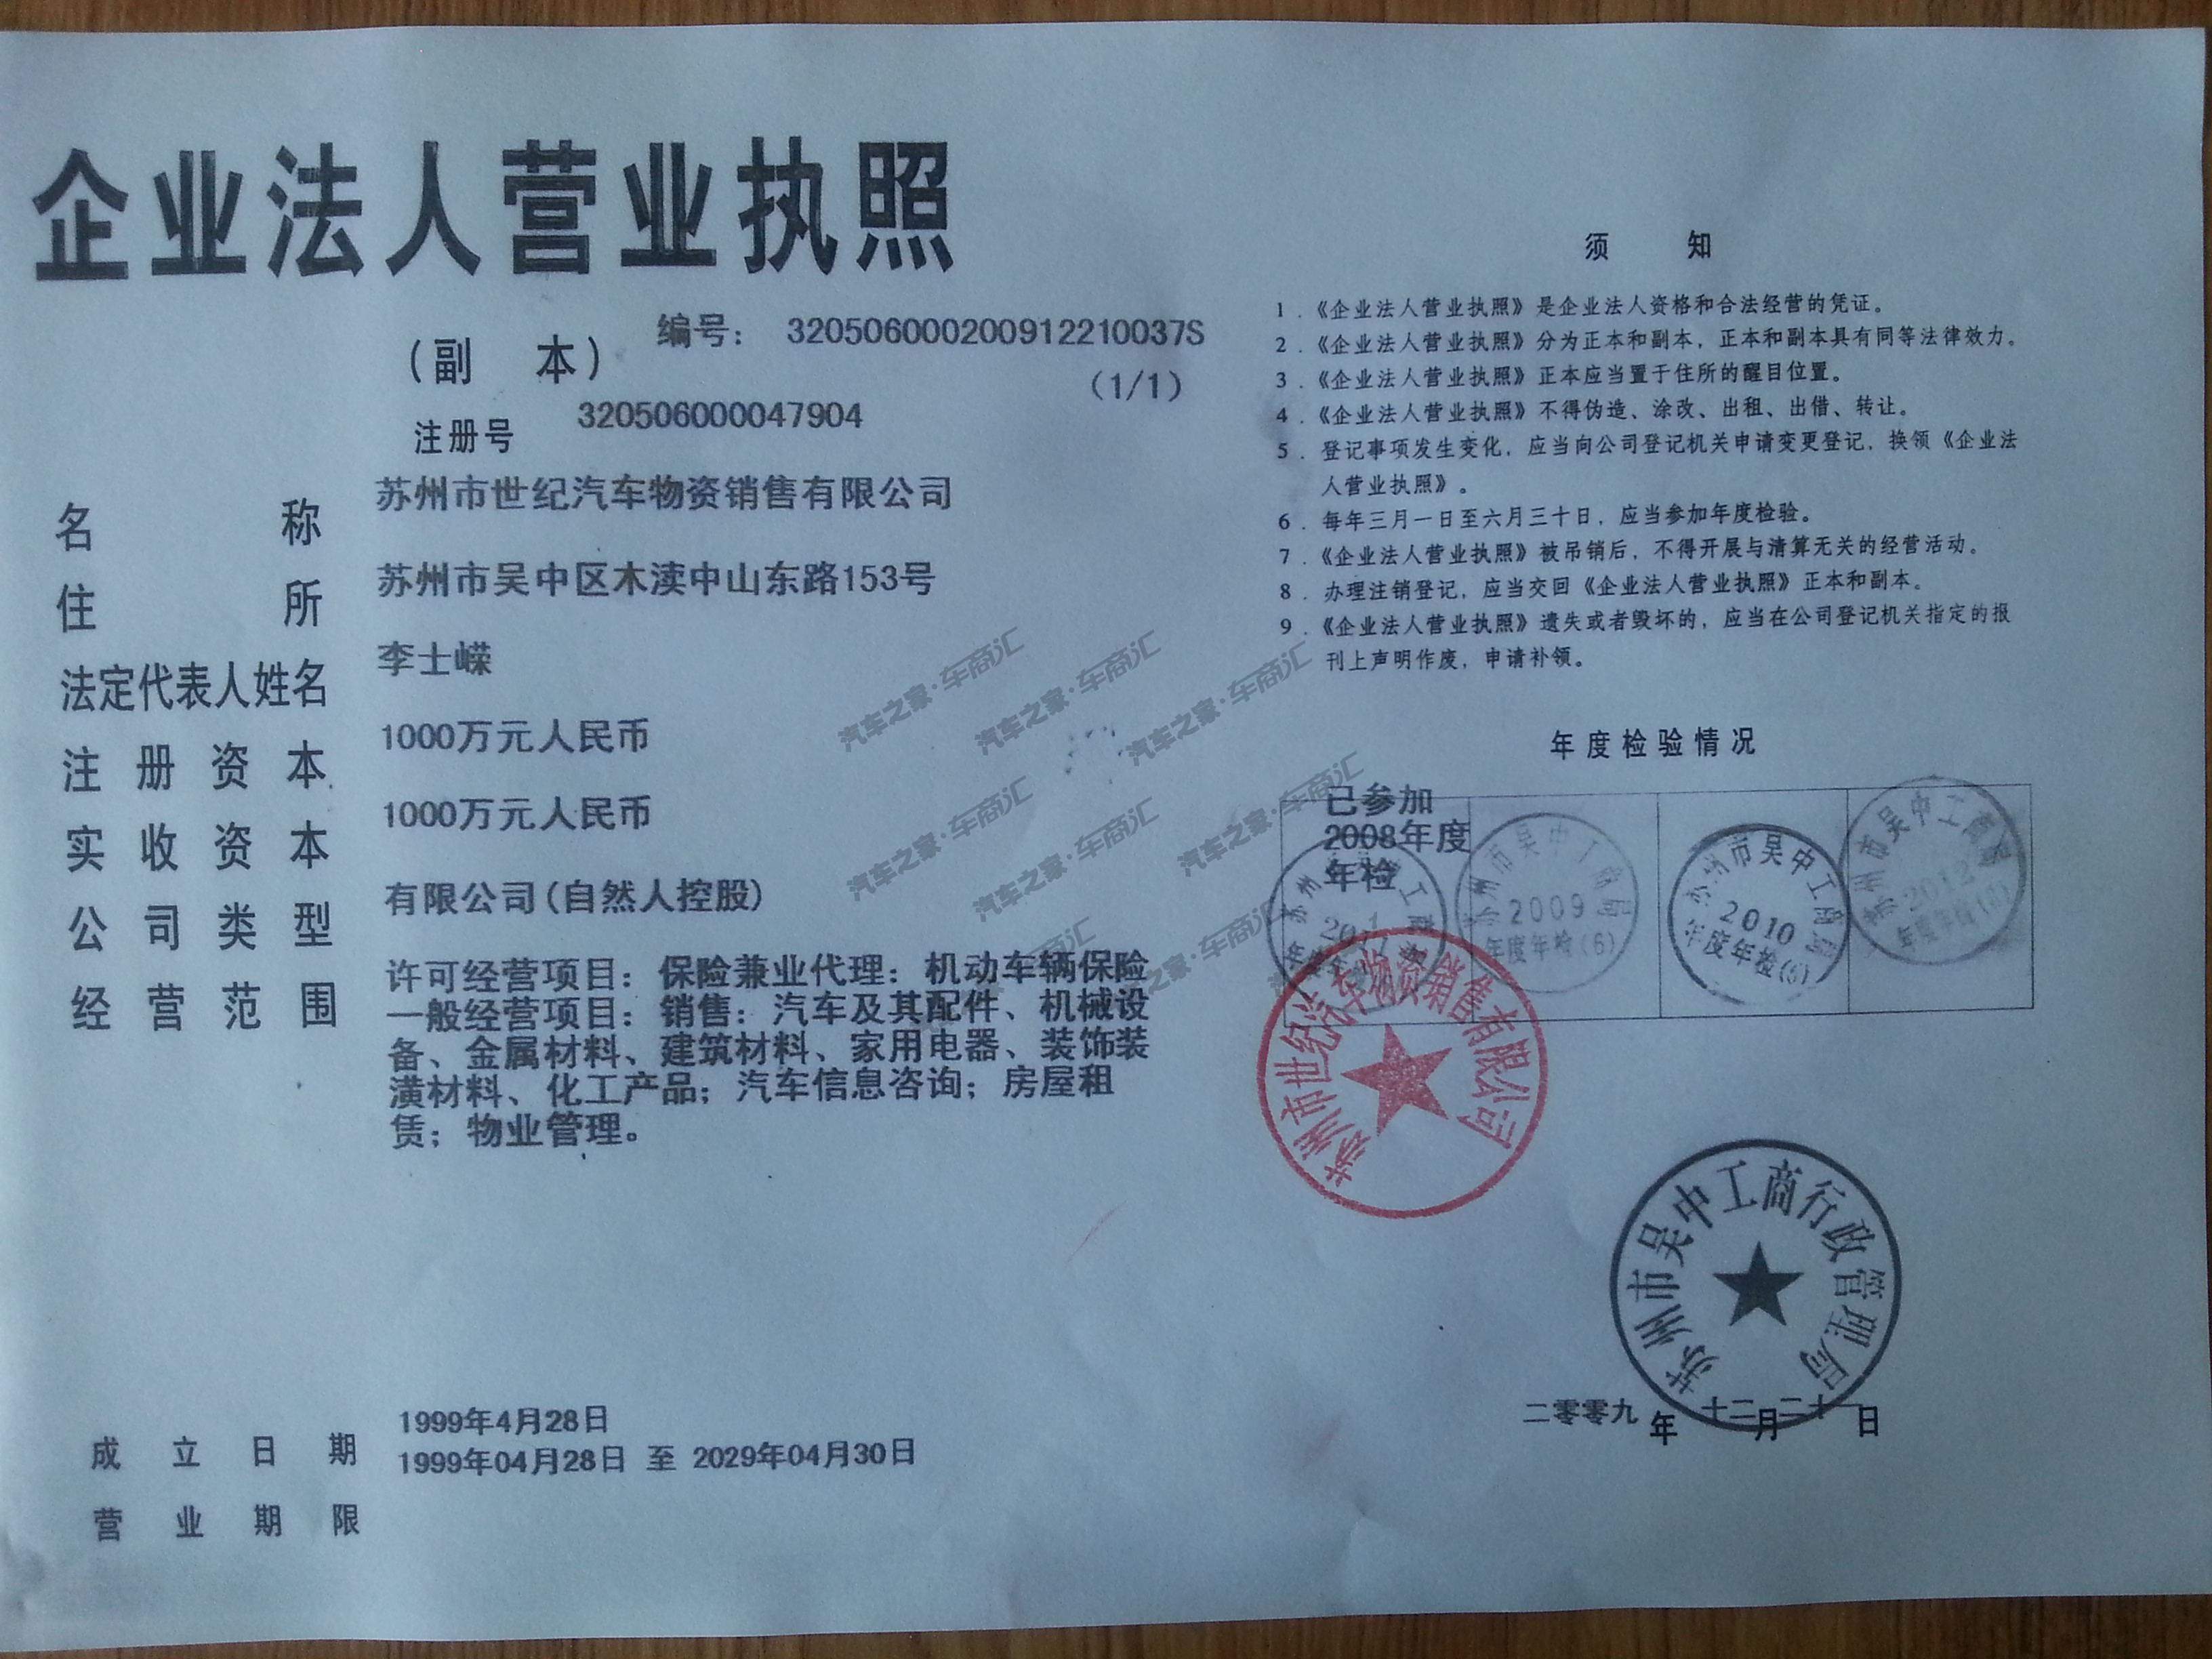 企业法人营业执照
(副 本)
编号: 320506000200912210037S
(1/1)
注册号 320506000047904
名 称 苏州市世纪汽车物资销售有限公司
住 所 苏州市吴中区木渎中山东路153号
法定代表人姓名 李士嵘
注 册 资 本 1000万元人民币
实 收 资 本 1000万元人民币
公 司 类 型 有限公司(自然人控股)
经 营 范 围 许可经营项目: 保险兼业代理: 机动车辆保险
一般经营项目: 销售: 汽车及其配件、机械设
备、金属材料、建筑材料、家用电器、装饰装
潢材料、化工产品; 汽车信息咨询; 房屋租
赁; 物业管理。
成 立 日 期 1999年4月28日
营 业 期 限 1999年04月28日 至 2029年04月30日
须 知
1.《企业法人营业执照》是企业法人资格和合法经营的凭证。
2.《企业法人营业执照》分为正本和副本, 正本和副本具有同等法律效力。
3.《企业法人营业执照》正本应当置于住所的醒目位置。
4.《企业法人营业执照》不得伪造、涂改、出租、出借、转让。
5. 登记事项发生变化, 应当向公司登记机关申请变更登记, 换领《企业法
人营业执照》。
6. 每年三月一日至六月三十日, 应当参加年度检验。
7.《企业法人营业执照》被吊销后, 不得开展与清算无关的经营活动。
8. 办理注销登记, 应当交回《企业法人营业执照》正本和副本。
9.《企业法人营业执照》遗失或者毁坏的, 应当在公司登记机关指定的报
刊上声明作废, 申请补领。
年度检验情况
已参加
2008年度
年检
2011
苏州市吴中工商局
2009
年度年检(6)
苏州市吴中工商局
2010
年度年检(6)
苏州市吴中工商局
2012
年度年检
苏州市世纪汽车物资销售有限公司
苏州市吴中工商行政管理局
二零零九 年 十二 月 二十一 日
汽车之家·车商汇
汽车之家·车商汇
汽车之家·车商汇
汽车之家·车商汇
汽车之家·车商汇
汽车之家·车商汇